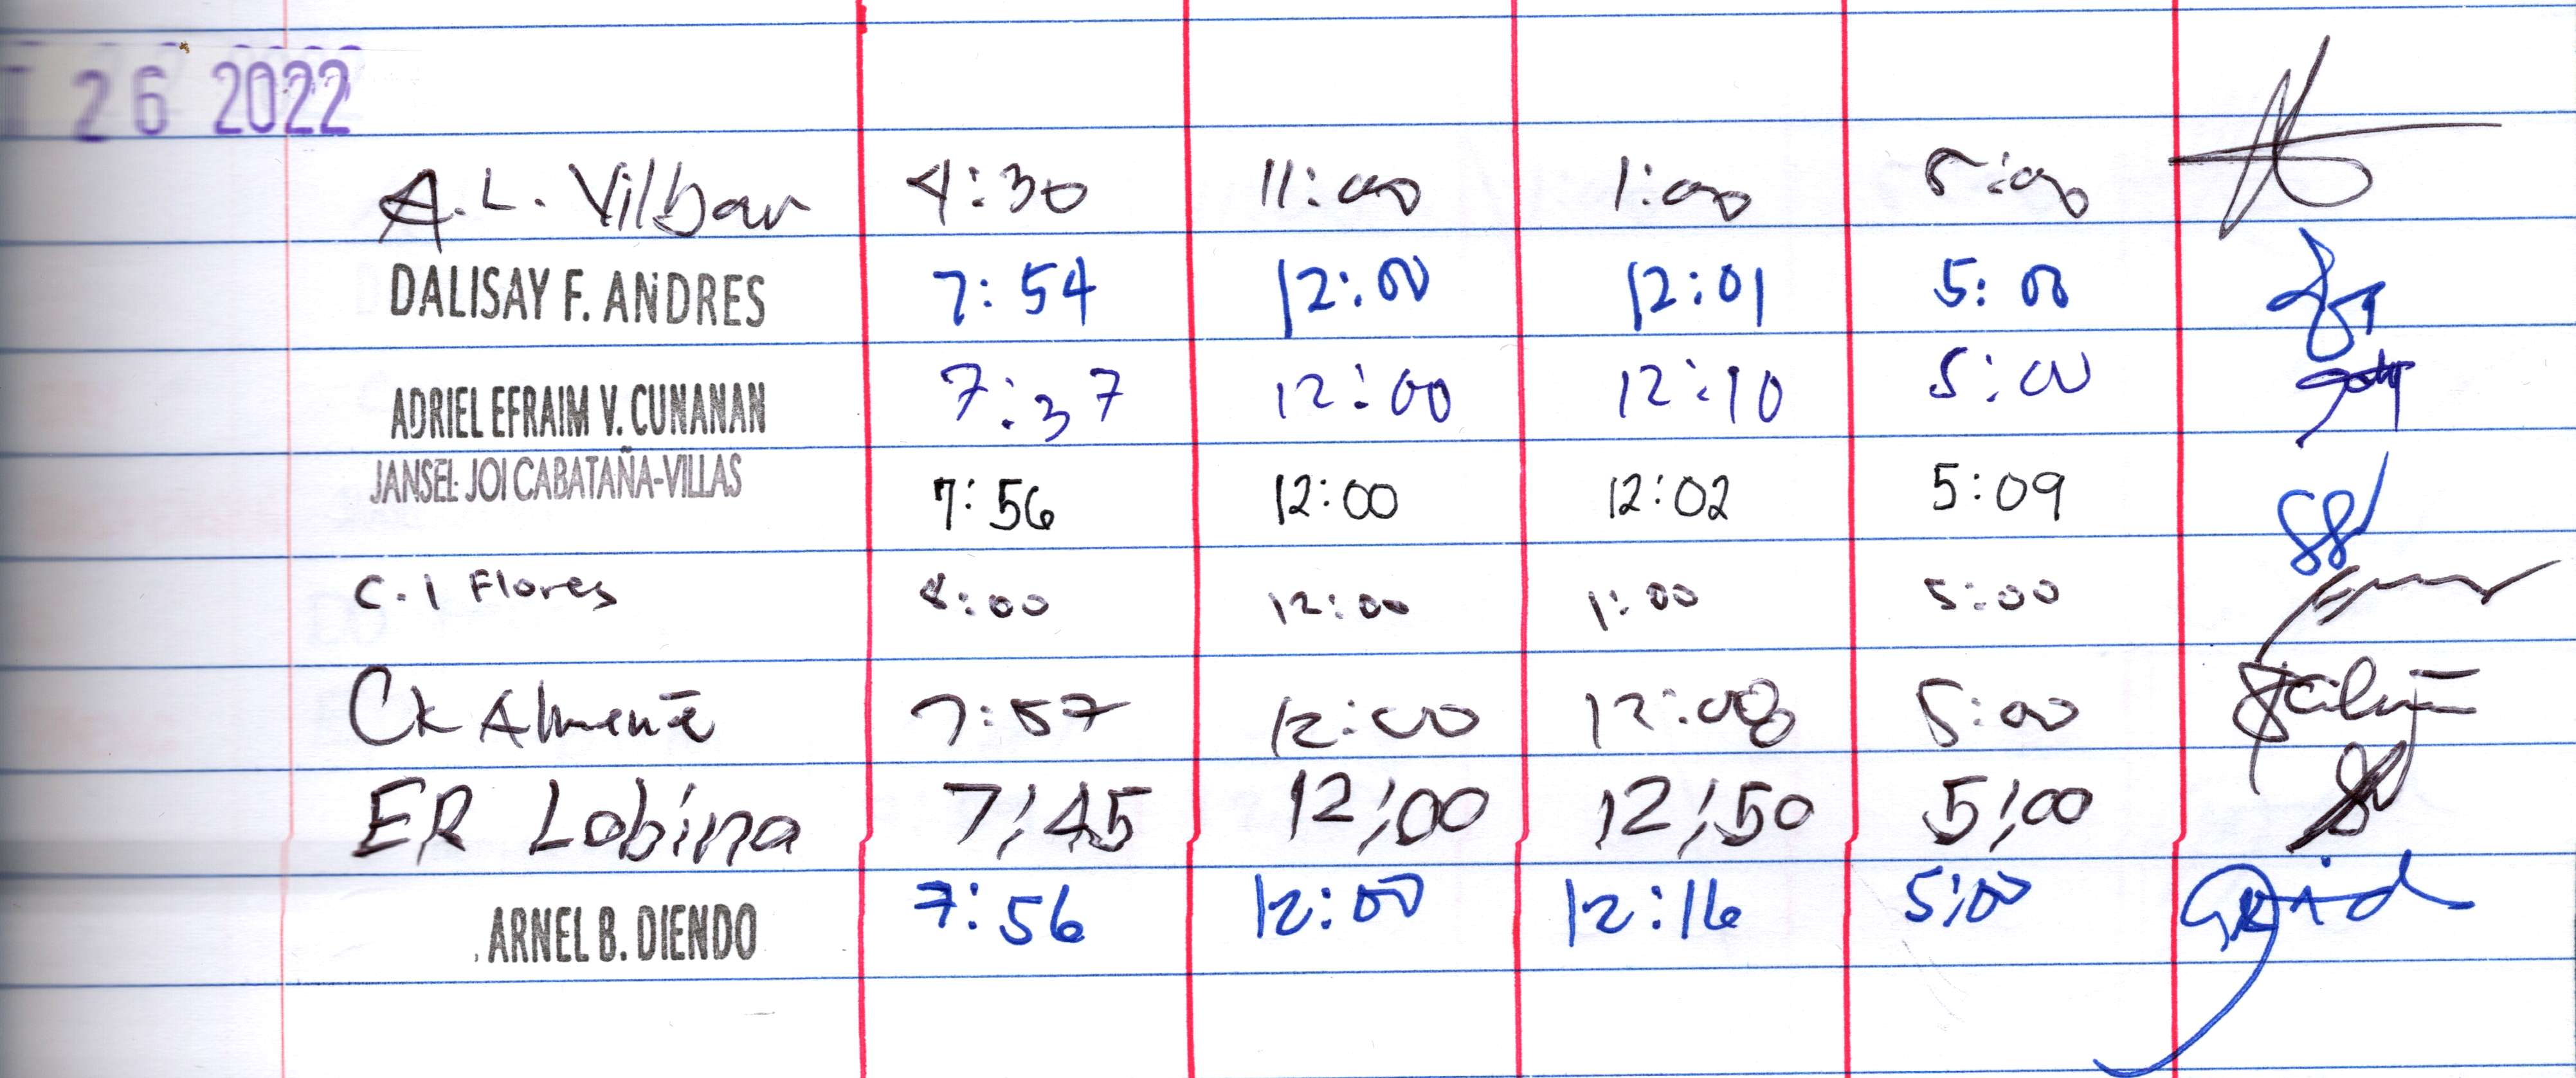 T 26 2022
A.L. Vilbar 4:30 11:00 1:00 5:00
DALISAY F. ANDRES 7:54 12:00 12:01 5:00
ADRIEL EFRAIM V. CUNANAN 7:37 12:00 12:10 5:00
JANSEL JOI CABATAÑA-VILLAS 7:56 12:00 12:02 5:09
C.I Flores 8:00 12:00 1:00 5:00
CK 7:57 12:00 12:08 5:00
ER Lobina 7:45 12:00 12:50 5:00
ARNEL B. DIENDO 7:56 12:00 12:16 5:00